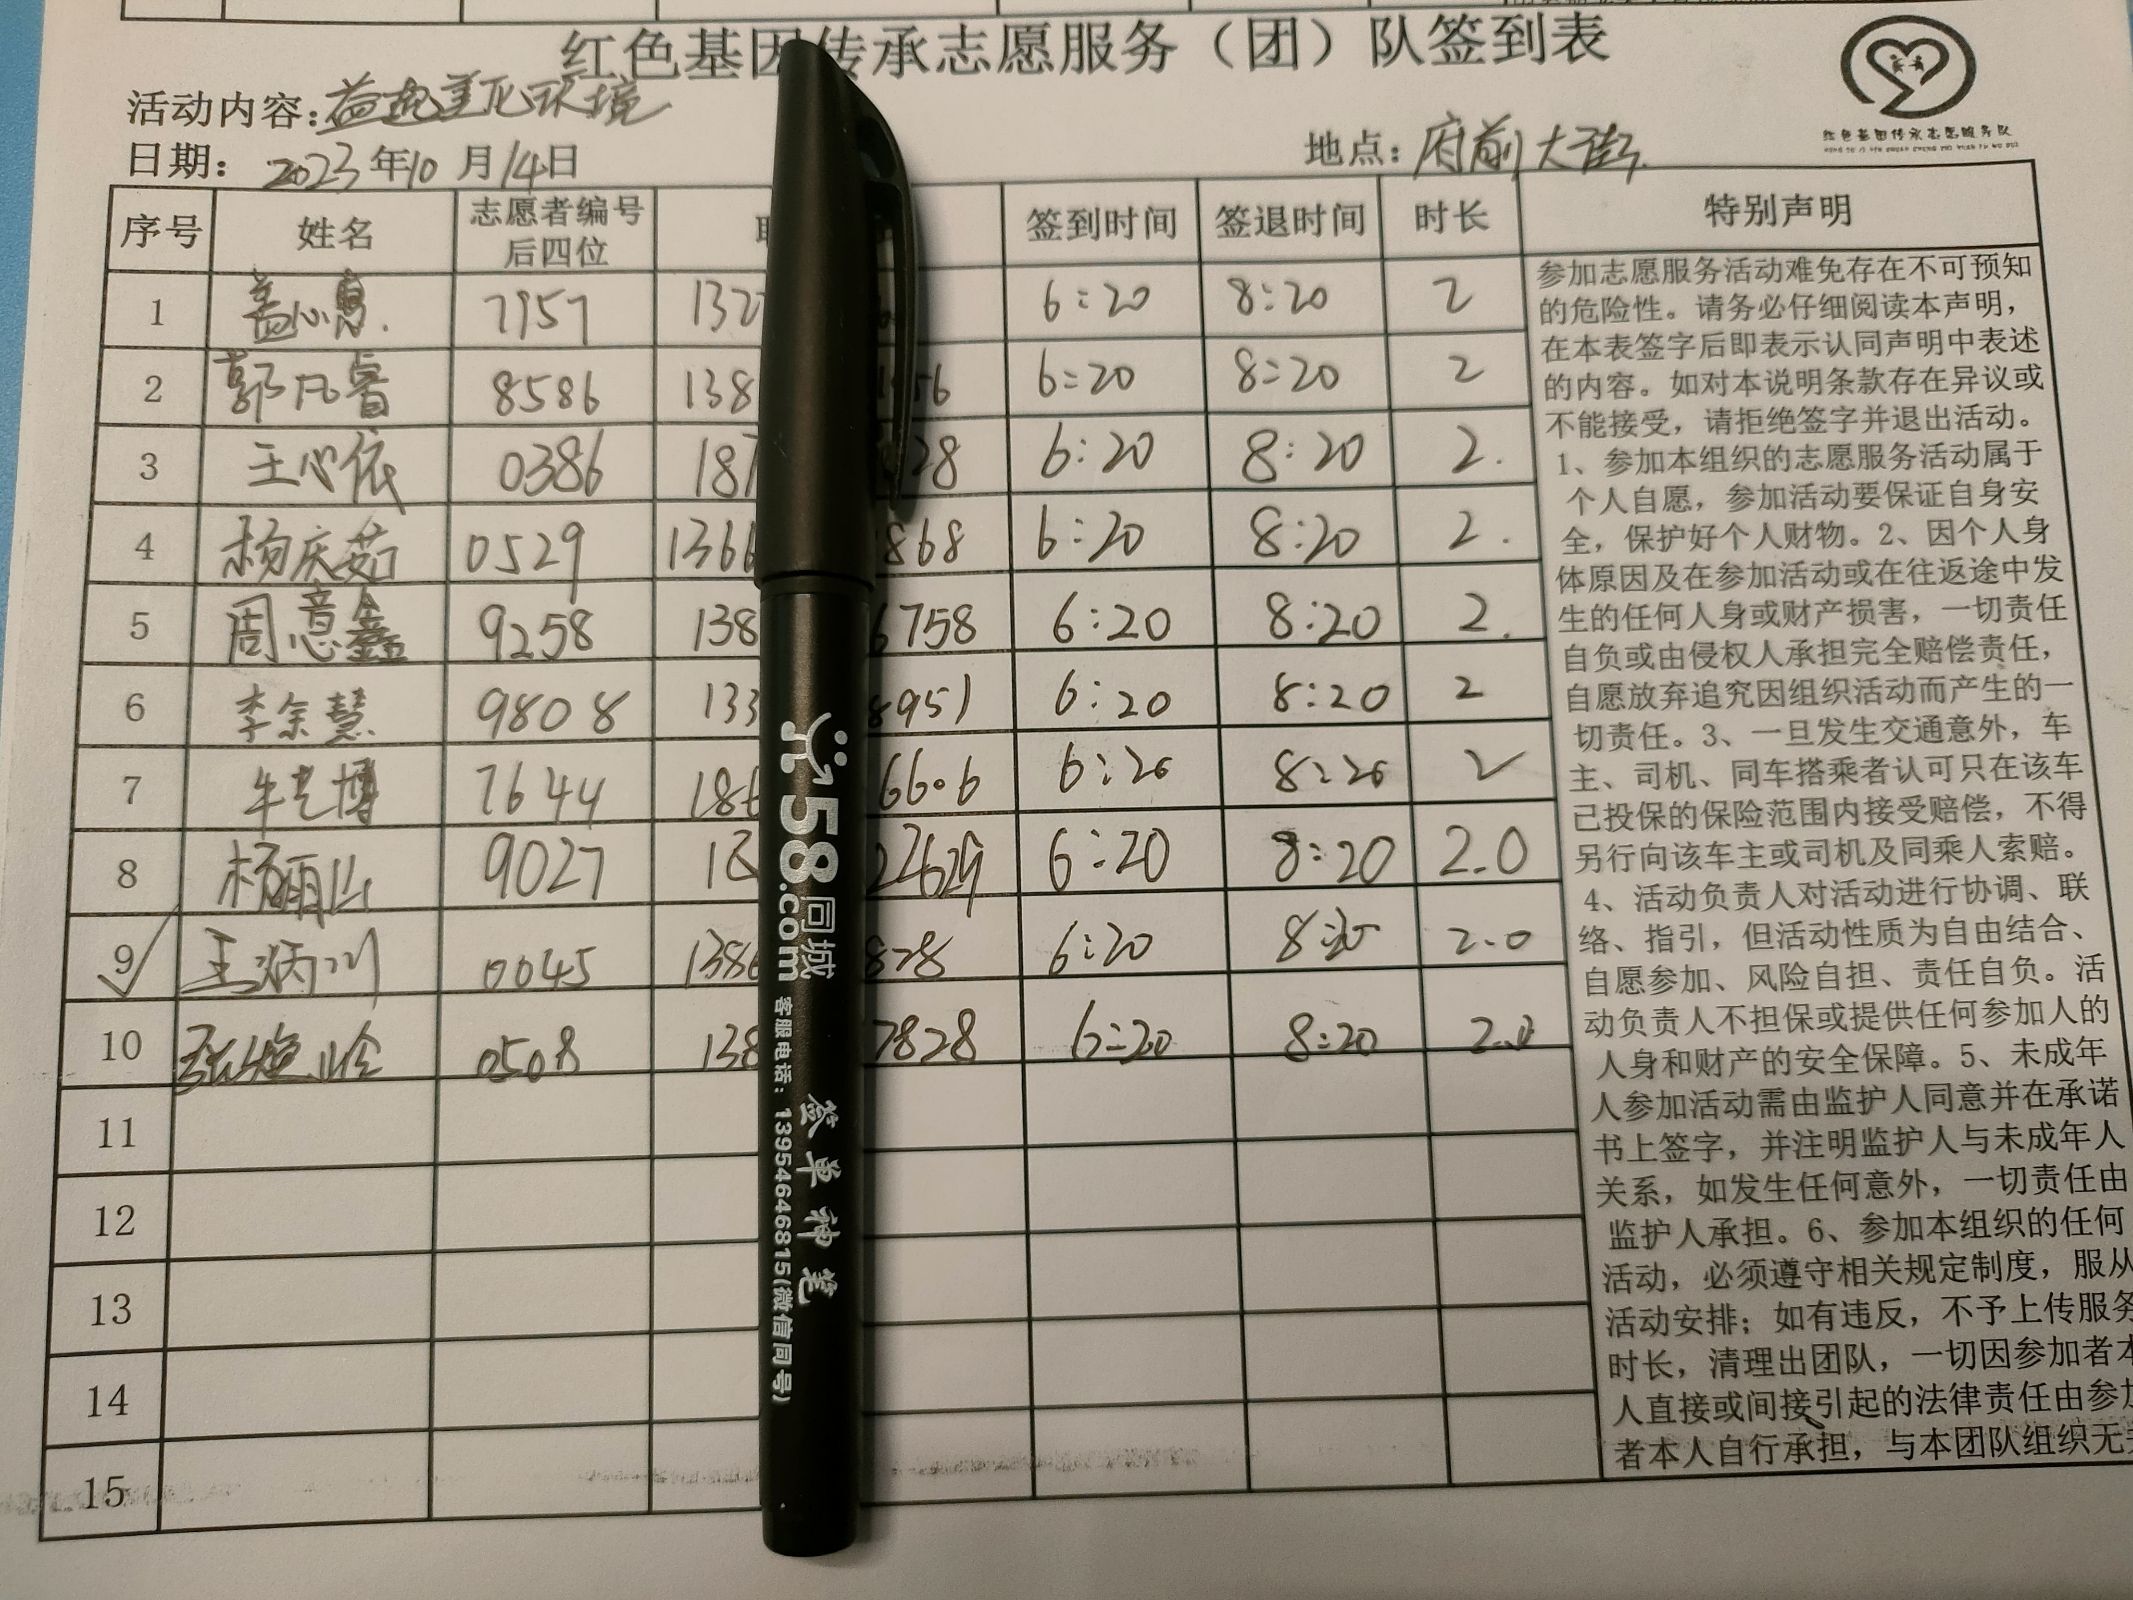 红色基因传承志愿服务（团）队签到表
活动内容：益起美化环境
红色基因传承志愿服务队
日期：2023年10月14日
地点：府前大街
序号 姓名 志愿者编号后四位 签到时间 签退时间 时长 特别声明
1 盖心惠 7957 132 6:20 8:20 2
2 郭凡睿 8586 138 56 6:20 8:20 2
3 王心依 0386 187 28 6:20 8:20 2.
4 杨庆茹 0529 1366 868 6:20 8:20 2.
5 周意鑫 9258 138 6758 6:20 8:20 2.
6 李余慧 9808 133 8951 6:20 8:20 2
7 7644 186 6606 6:20 8:20 2
8 杨雨山 9027 22629 6:20 8:20 2.0
9 王炳川 0045 1386 828 6:20 8:20 2.0
10 0508 138 7828 6:20 8:20 2.0
11
12
13
14
15
参加志愿服务活动难免存在不可预知
的危险性。请务必仔细阅读本声明，
在本表签字后即表示认同声明中表述
的内容。如对本说明条款存在异议或
不能接受，请拒绝签字并退出活动。
1、参加本组织的志愿服务活动属于
个人自愿，参加活动要保证自身安
全，保护好个人财物。2、因个人身
体原因及在参加活动或在往返途中发
生的任何人身或财产损害，一切责任
自负或由侵权人承担完全赔偿责任，
自愿放弃追究因组织活动而产生的一
切责任。3、一旦发生交通意外，车
主、司机、同车搭乘者认可只在该车
已投保的保险范围内接受赔偿，不得
另行向该车主或司机及同乘人索赔。
4、活动负责人对活动进行协调、联
络、指引，但活动性质为自由结合、
自愿参加、风险自担、责任自负。活
动负责人不担保或提供任何参加人的
人身和财产的安全保障。5、未成年
人参加活动需由监护人同意并在承诺
书上签字，并注明监护人与未成年人
关系，如发生任何意外，一切责任由
监护人承担。6、参加本组织的任何
活动，必须遵守相关规定制度，服从
活动安排；如有违反，不予上传服务
时长，清理出团队，一切因参加者本
人直接或间接引起的法律责任由参加
者本人自行承担，与本团队组织无
58同城
58.com
签单神笔
客服电话：13954646815(微信同号)